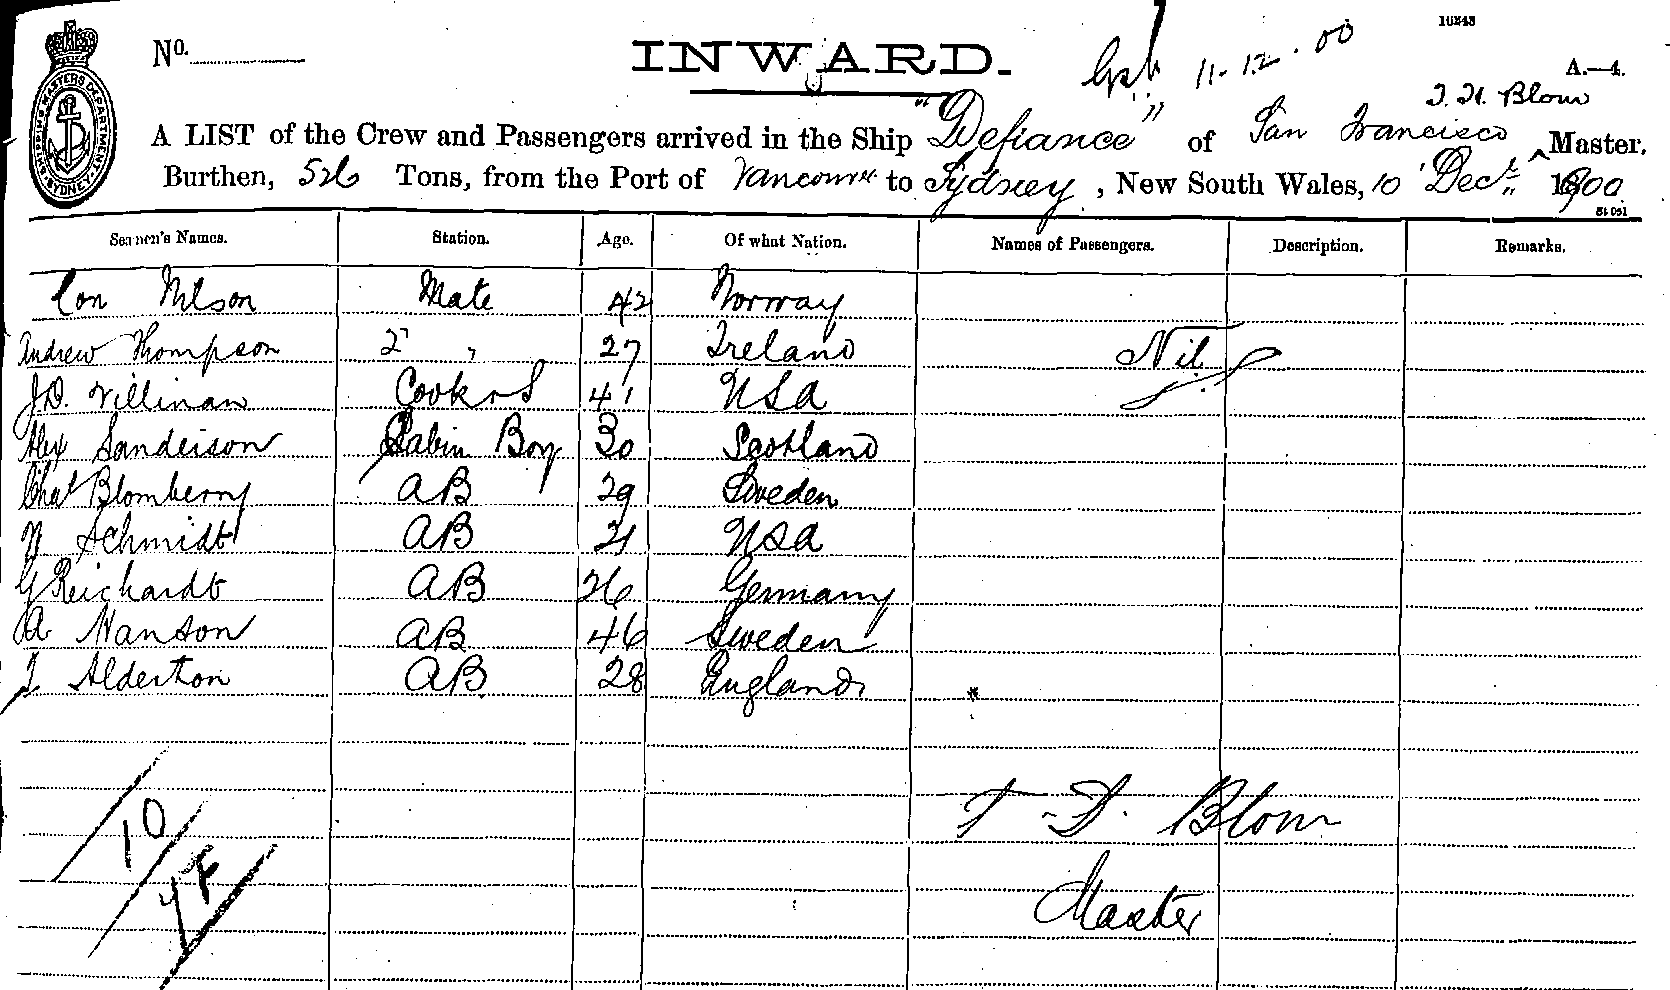 16243
No.
INWARD.
11.12.00
A.—4.
A LIST of the Crew and Passengers arrived in the Ship "Defiance" of San Francisco, Blom Master,
Burthen, 526 Tons, from the Port of Vancouver to Sydney, New South Wales, 10 Decr. 1900
SHIPPING MASTERS DEPARTMENT SYDNEY
Seamen's Names. Station. Age. Of what Nation. Names of Passengers. Description. Remarks.
Con Nilson Mate 42 Norway
Andrew Thompson 2 " 27 Ireland Nil
J.D. Villinan Cook & S 41 USA
Alex Sanderson Cabin Boy 30 Scotland
Chas Blomberry AB 29 Sweden
Schmidt AB 21 USA
G Reichardt AB 26 Germany
A Hanson AB 46 Sweden
Alderton AB 28 England
Blom
10
Master